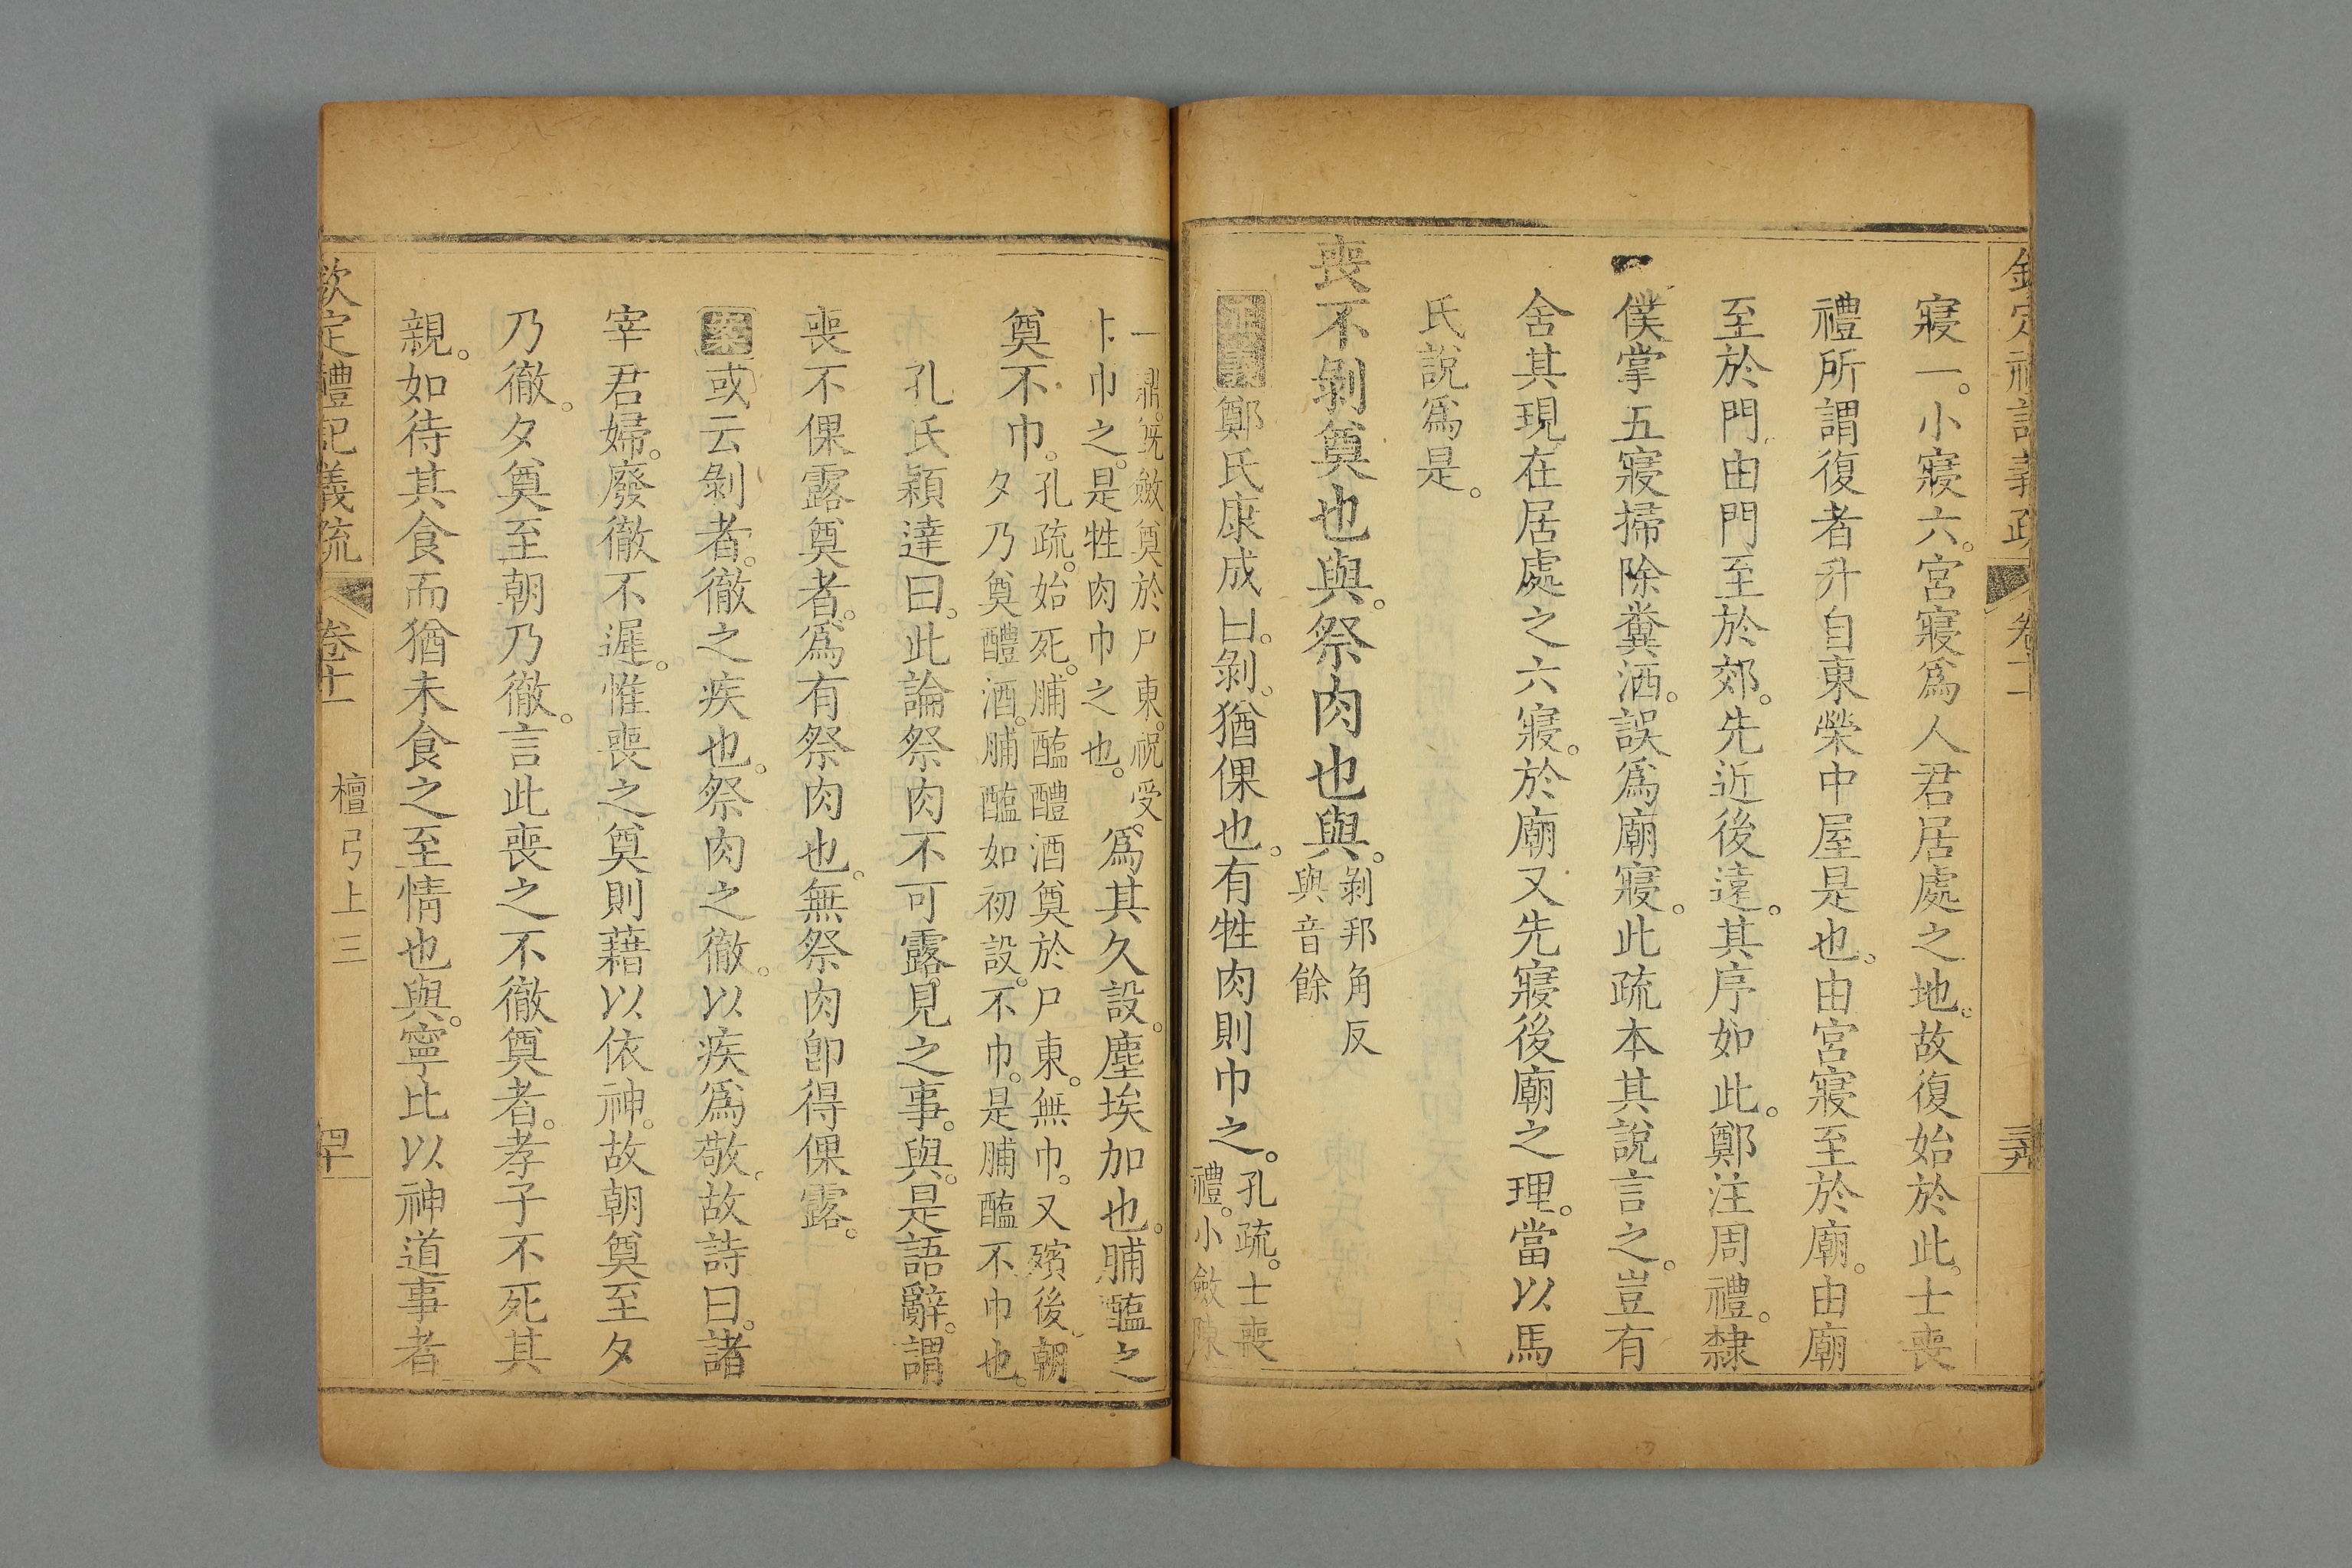 寢一。小寢六。宮寢爲人君居處之地。故復始於此。士喪
禮所謂復者升自東榮中屋是也。由宮寢至於廟。由廟
至於門由門至於郊。先近後遠。其序如此。鄭注周禮。隸
僕掌五寢掃除糞洒。誤爲廟寢。此疏本其說言之。豈有
舍其現在居處之六寢。於廟又先寢後廟之理。當以馬
氏說爲是。
喪不剝奠也與。祭肉也與。剝邦角反
與音餘
正義鄭氏康成曰。剝。猶倮也。有牲肉則巾之。孔疏。士喪
禮。小斂陳
一鼎。既斂奠於尸東。祝受。
巾巾之。是牲肉巾之也。爲其久設。塵埃加也。脯醢之
奠不巾。孔疏。始死。脯醢醴酒奠於尸東。無巾。又殯後。朝
夕乃奠醴酒。脯醢如初設。不巾。是脯醢不巾也。
孔氏穎達曰。此論祭肉不可露見之事。與。是語辭。謂
喪不倮露奠者。爲有祭肉也。無祭肉卽得倮露。
案或云剝者。徹之疾也。祭肉之徹。以疾爲敬。故詩曰。諸
宰君婦。廢徹不遲。惟喪之奠則藉以依神。故朝奠至夕
乃徹。夕奠至朝乃徹。言此喪之不徹奠者。孝子不死其
親。如待其食而猶未食之至情也與。寧比以神道事者
欽定禮記義疏 卷十一 檀弓上三 四十